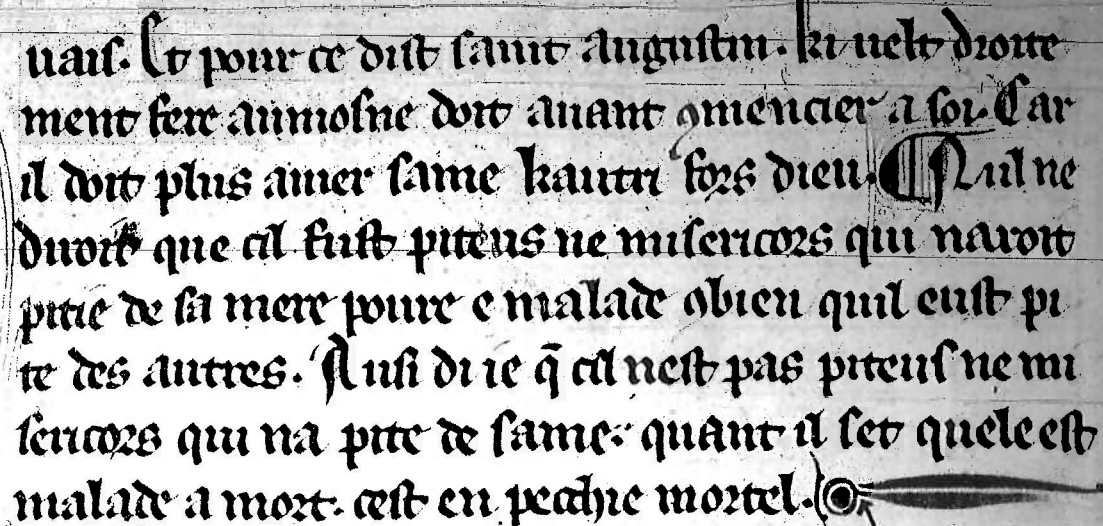 uais. Et pour ce dist saint augustin. ki uelt droite
ment fere aumosne doit auant ꝯmencier a soi. Car
il doit plus amer same kautri fors dieu. ¶ Nul ne
diroit que cil fust piteus ne misericors qui naroit
pitie de sa mere poure e malade ꝯbien quil eust pi
te des autres. Ausi di ie q̄ cil nest pas piteus ne mi
sericors qui na pite de same. quant il set quele est
malade a mort. cest en pecchie mortel.